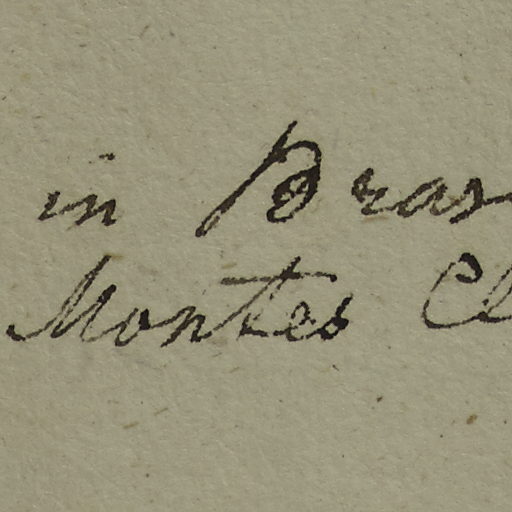 in Bras
Montes Cl